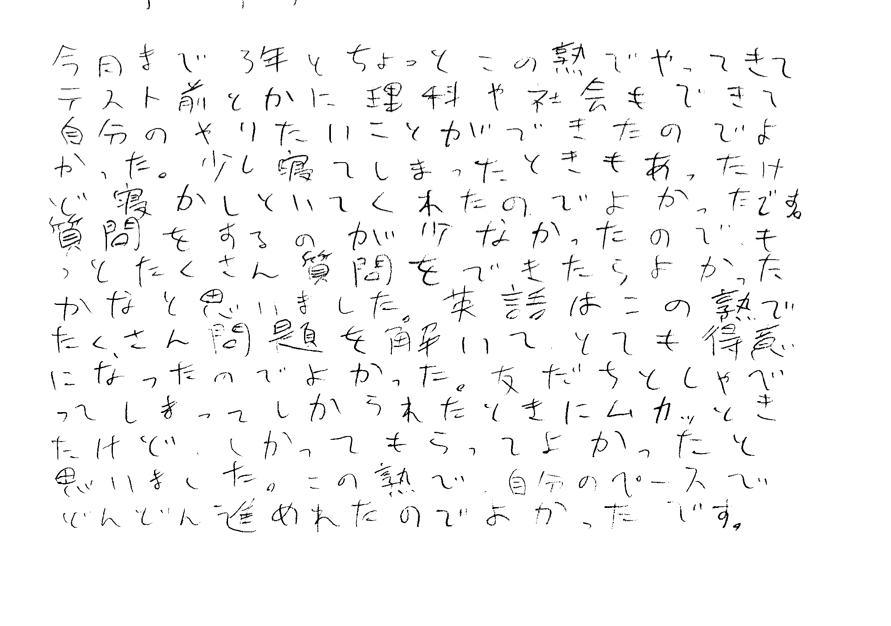 今日まで3年とちょっとこの熟でやってきて
テスト前とかに理科や社会もできて
自分のやりたいことができたのでよ
かった。少し寝てしまったときもあったけ
ど寝かしといてくれたのでよかったです。
質問をするのが少なかったので、も
っとたくさん質問をできたらよかった
かなと思いました。英語はこの熟で
たくさん問題を解いて、とても得意
になったのでよかった。友だちとしゃべ
ってしまってしかられたときにムカッとき
たけど、しかってもらってよかったと
思いました。この熟で、自分のペースで
どんどん進めれたのでよかったです。